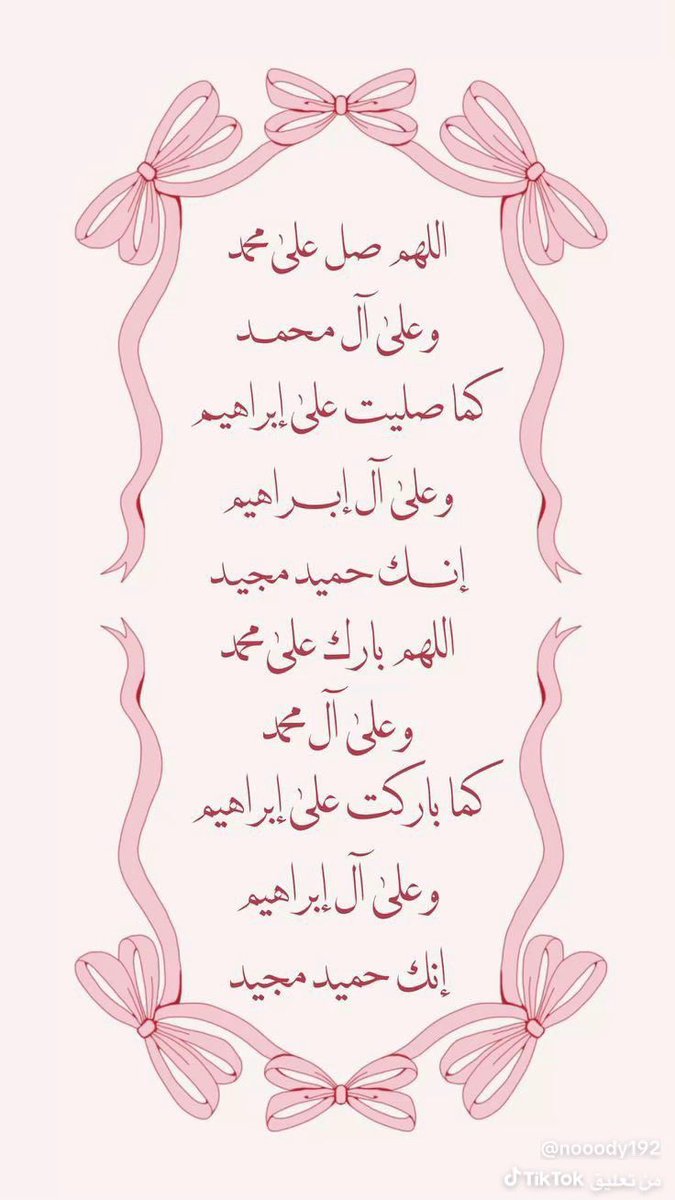 اللهم صل على محمد
وعلى آل محمد
كما صليت على إبراهيم
وعلى آل إبراهيم
إنك حميد مجيد
اللهم بارك على محمد
وعلى آل محمد
كما باركت على إبراهيم
وعلى آل إبراهيم
إنك حميد مجيد
@nooody192
من تعليق TikTok